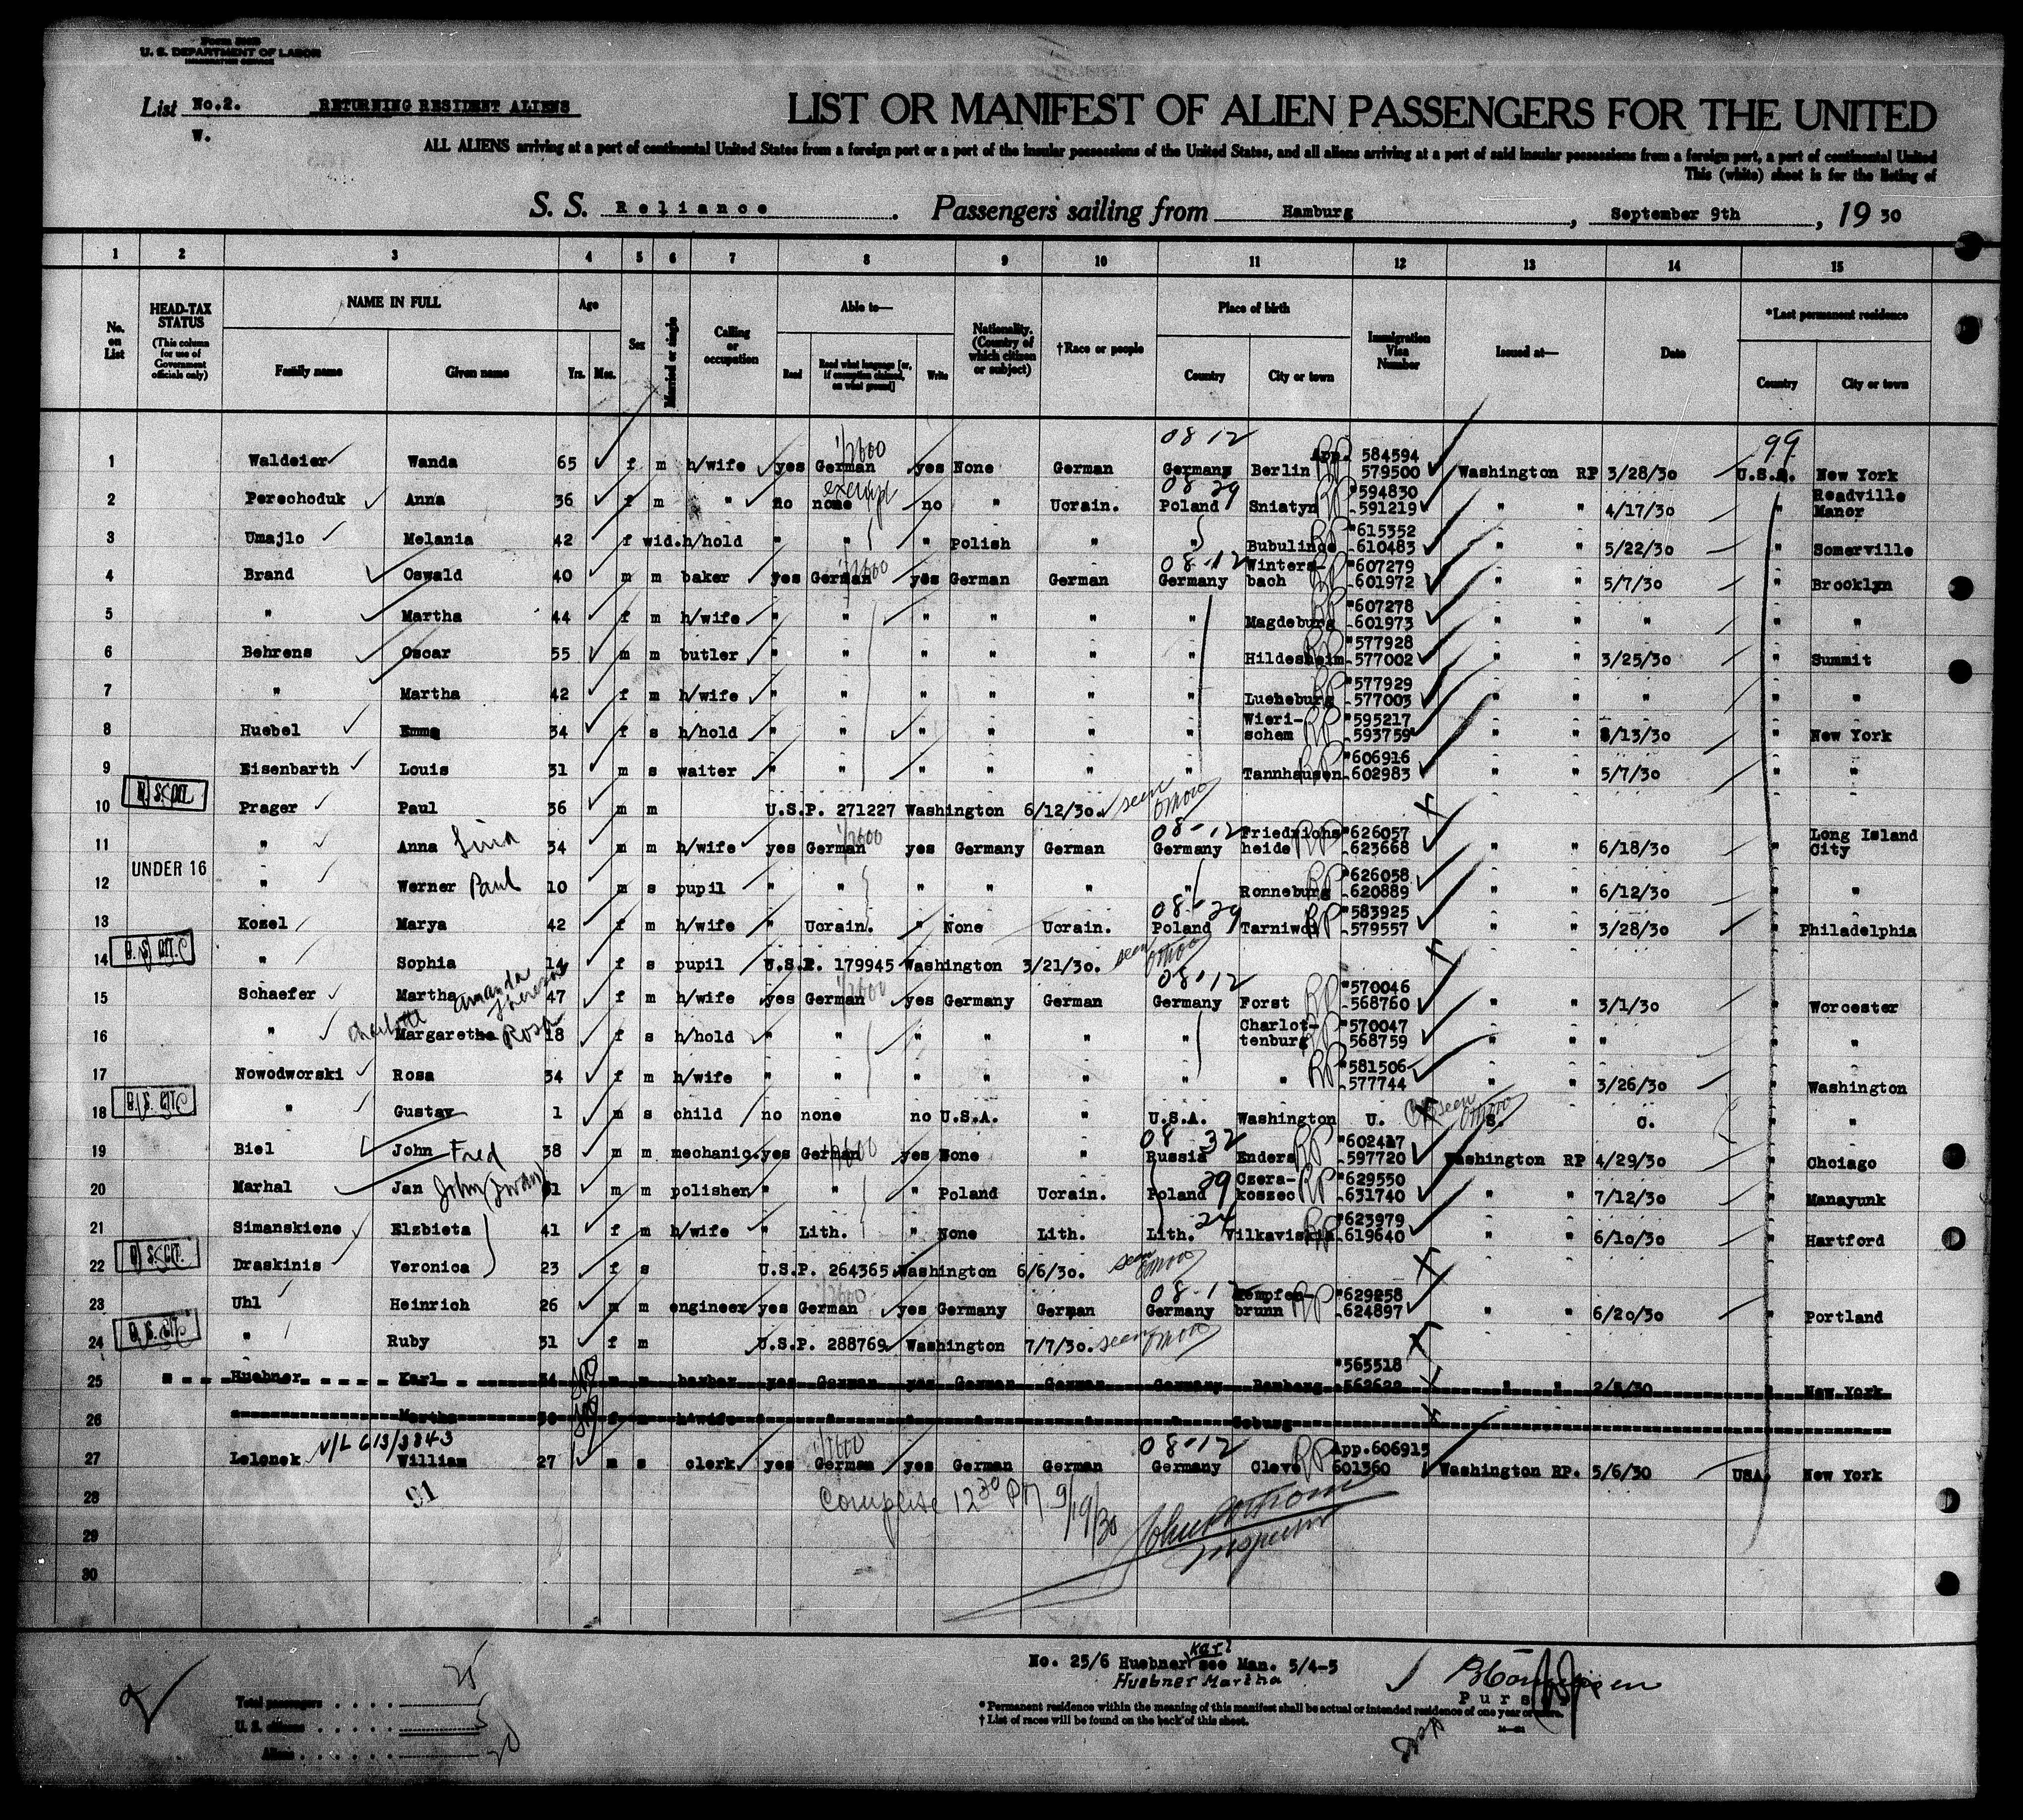 Form
U. S. DEPARTMENT OF LABOR
IMMIGRATION SERVICE
List No.2. RETURNING RESIDENT ALIENS
W.
LIST OR MANIFEST OF ALIEN PASSENGERS FOR THE UNITED
ALL ALIENS arriving at a port of continental United States from a foreign port or a port of the insular possessions of the United States, and all aliens arriving at a port of said insular possessions from a foreign port, a port of continental United
This (white) sheet is for the listing of
S. S. Reliance. Passengers sailing from Hamburg, September 9th, 1930
1 2 3 4 5 6 7 8 9 10 11 12 13 14 15
No. on List
HEAD-TAX STATUS (This column for use of Government officials only)
NAME IN FULL Family name Given name
Age Yrs. Mos.
Sex
Married or single
Calling or occupation
Able to— Read Read what language [or, if exemption claimed, on what ground] Write
Nationality. (Country of which citizen or subject)
†Race or people
Place of birth Country City or town
Immigration Visa Number
Issued at—
Date
*Last permanent residence Country City or town
08 12 99
1 Waldeier Wanda 65 f m h/wife yes German yes None German Germany Berlin RP App. 584594 579500 Washington RP 3/28/30 U.S.A. New York
exempt 08 29
2 Perechoduk Anna 36 f m " no none no " Ucrain. Poland Sniatyn RP "594830 -591219 " " 4/17/30 " Readville Manor
3 Umajlo Melania 42 f wid. h/hold " " " Polish " " Bubulince RP "615352 -610483 " " 5/22/30 " Somerville
08-12
4 Brand Oswald 40 m m baker yes German yes German German Germany Winters-bach RP "607279 -601972 " " 5/7/30 " Brooklyn
5 " Martha 44 f m h/wife " " " " " " Magdeburg RP "607278 -601973 " " " " "
6 Behrens Oscar 55 m m butler " " " " " " Hildesheim RP "577928 -577002 " " 3/25/30 " Summit
7 " Martha 42 f m h/wife " " " " " " Lueneburg RP "577929 -577003 " " " " "
8 Huebel Emma 34 f s h/hold " " " " " " Wieri-schem RP "595217 -593759 " " /13/30 " New York
9 Eisenbarth Louis 31 m s waiter " " " " " " Tannhausen RP "606916 -602983 " " 5/7/30 " "
U.S. CIT.
10 Prager Paul 36 m m U.S.P. 271227 Washington 6/12/30. seen
08-12
11 " Anna Lina 34 m m h/wife yes German yes Germany German Germany Friedrichs heide RP "626057 -623668 " " 6/18/30 " Long Island City
UNDER 16
12 " Werner Paul 10 m s pupil " " " " " " Ronneburg RP "626058 -620889 " " 6/12/30 " "
08-29
13 Kozel Marya 42 f m h/wife " Ucrain. " None Ucrain. Poland Tarniwci RP "583925 -579557 " " 3/28/30 " Philadelphia
U.S. CIT.
14 " Sophia 14 f s pupil U.S.P. 179945 Washington 3/21/30. seen
08-12
15 Schaefer Martha Amanda Therese 47 f m h/wife yes German yes Germany German Germany Forst RP "570046 -568760 " " 3/1/30 " Worcester
16 " Charlotte Margaretha Rosa 18 f s h/hold " " " " " " Charlot-tenburg RP "570047 568759 " " " " "
17 Nowodworski Rosa 34 f m h/wife " " " " " " " RP "581506 -577744 " " 3/26/30 " Washington
U.S. CIT.
18 " Gustav 1 m s child no none no U.S.A. " U.S.A. Washington U. S. C. " " seen
08 32
19 Biel John Fred 38 m m mechanic. yes German yes None " Russia Enders RP "602417 -597720 Washington RP 4/29/30 " Chciago
29
20 Marhal Jan John (Iwan) 31 m m polisher " " " Poland Ucrain. Poland Czera-koszec RP "629550 -631740 " " 7/12/30 " Manayunk
24
21 Simanskiene Elzbieta 41 f m h/wife " Lith. " None Lith. Lith. Vilkaviskis RP "623979 -619640 " " 6/10/30 " Hartford
U.S. CIT.
22 Draskinis Veronica 23 f s U.S.P. 264365 Washington 6/6/30. seen
08-1
23 Uhl Heinrich 26 m m engineer yes German yes Germany German Germany Kempfen-brunn RP "629258 -624897 " " 6/20/30 " Portland
U.S. CIT.
24 " Ruby 31 f m U.S.P. 288769 Washington 7/7/30. seen
25 Huebner Karl 34 m m barber yes German yes German German Germany Bamberg "565518 -562622 " " 2/5/30 " New York
26 " Martha 30 f m h/wife " " " " " " Coburg
V/L 613/3843 08-12
27 Lelonek William 27 m s clerk yes German yes German German Germany Cleve RP App.606915 601360 Washington RP. 5/6/30 USA. New York
28 91 Complete 12 30 PM 9/19/30
29 Inspector
30
No. 25/6 Huebner Karl see Man. 5/4-5
Huebner Martha
Purser
Total passengers 25
U. S. citizens 5
Aliens 20
* Permanent residence within the meaning of this manifest shall be actual or intended residence of one year or more.
† List of races will be found on the back of this sheet.